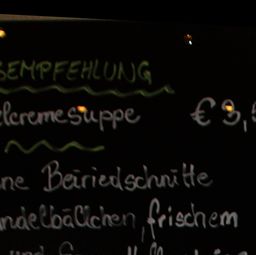 SEMPFEHLUNG
elcremesuppe € 3,
ne Beiriedschnitte
ndelbällchen, frischem
und